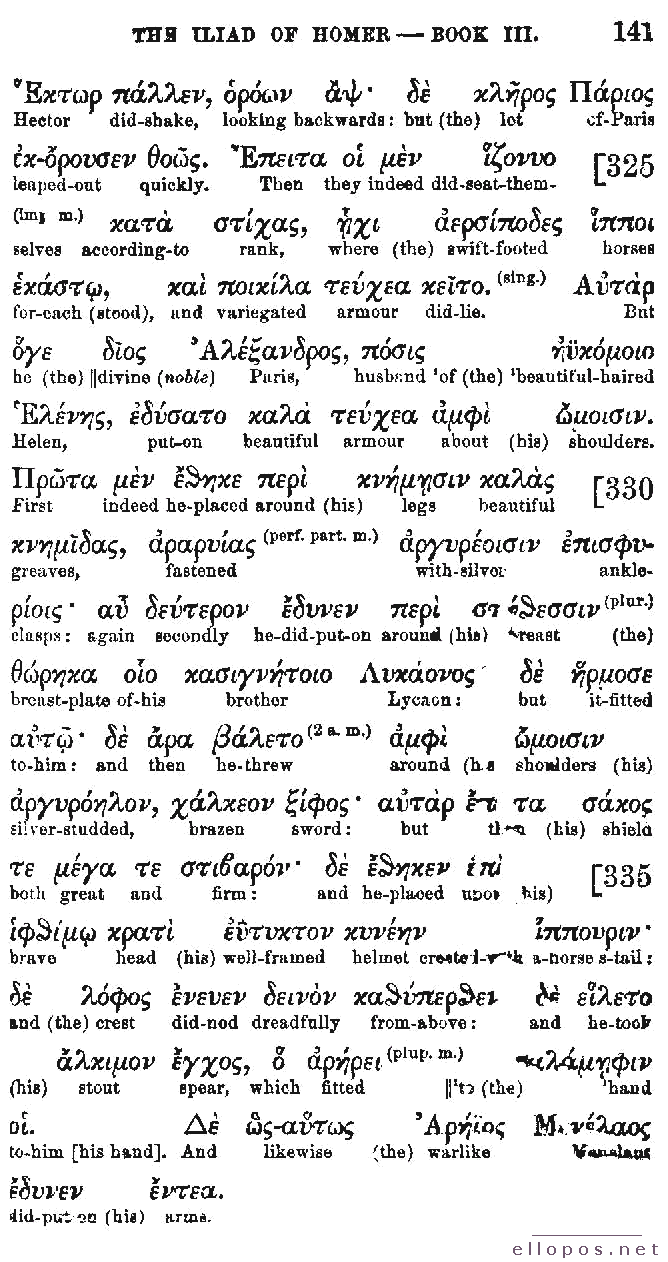 THE ILIAD OF HOMER — BOOK III. 141
Ἕκτωρ πάλλεν, ὁρόων ἄψ· δὲ κλῆρος Πάριος
Hector did-shake, looking backwards: but (the) lot of-Paris
ἐκ-όρουσεν θοῶς. Ἔπειτα οἱ μὲν ἵζοντο [325
leaped-out quickly. Then they indeed did-seat-them-
(imp m.) κατὰ στίχας, ᾗχι ἀερσίποδες ἵπποι
selves according-to rank, where (the) swift-footed horses
ἑκάστῳ, καὶ ποικίλα τεύχεα κεῖτο. (sing.) Αὐτὰρ
for-each (stood), and variegated armour did-lie. But
ὅγε δῖος Ἀλέξανδρος, πόσις ἠϋκόμοιο
he (the) ||divine (noble) Paris, husband ²of (the) ¹beautiful-haired
Ἑλένης, ἐδύσατο καλὰ τεύχεα ἀμφὶ ὤμοισιν.
Helen, put-on beautiful armour about (his) shoulders.
Πρῶτα μὲν ἔθηκε περὶ κνήμῃσιν καλὰς [330
First indeed he-placed around (his) legs beautiful
κνημῖδας, ἀραρυίας (perf. part. m.) ἀργυρέοισιν ἐπισφυ-
greaves, fastened with-silver ankle-
ρίοις· αὖ δεύτερον ἔδυνεν περὶ στήθεσσιν (plur.)
clasps: again secondly he-did-put-on around (his) breast (the)
θώρηκα οἷο κασιγνήτοιο Λυκάονος· δὲ ἥρμοσε
breast-plate of-his brother Lycaon: but it-fitted
αὐτῷ· δὲ ἄρα βάλετο (2 a. m.) ἀμφὶ ὤμοισιν
to-him: and then he-threw around (his shoulders (his)
ἀργυρόηλον, χάλκεον ξίφος· αὐτὰρ ἔπειτα σάκος
silver-studded, brazen sword: but then (his) shield
τε μέγα τε στιβαρόν· δὲ ἔθηκεν ἐπὶ [335
both great and firm: and he-placed upon his)
ἰφθίμῳ κρατὶ εὔτυκτον κυνέην ἵππουριν·
brave head (his) well-framed helmet crested-with a-horse's-tail:
δὲ λόφος ἔνευεν δεινὸν καθύπερθεν δὲ εἵλετο
and (the) crest did-nod dreadfully from-above: and he-took
ἄλκιμον ἔγχος, ὃ ἀρήρει (plup. m.) παλάμηφιν
(his) stout spear, which fitted ||²to (the) ¹hand
οἷ. Δὲ ὣς-αὔτως Ἀρήϊος Μενέλαος
to-him [his hand]. And likewise (the) warlike Menelaus
ἔδυνεν ἔντεα.
did-put on (his) arms.
ellopos.net